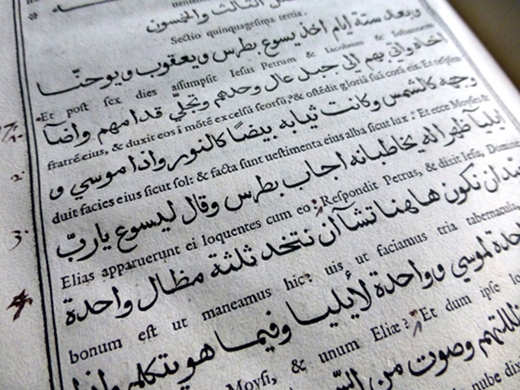 الثالث والخمسون
Sectio quinquagesima tertia.
وبعد ستة ايام اخذ يسوع بطرس ويعقوب ويوحنّا
Et post sex dies assumpsit Iesus Petrum & Iacobum & Iohannem
اخاه واتي بهم الي جبل عال وحدهم وتجلّي قدامهم واضآ
fratrē eius, & duxit eos ī mōtē excelsū seorsū, & ostēdit gloriā suā corā eis. Et resplen
وجهه كالشمس وكانت ثيابه بيضا كالنور واذا موسي و
duit facies eius sicut sol: & facta sunt uestimenta eius alba sicut lux: Et ecce Moyses &
ايليا ظهرا له يخاطبانه اجاب بطرس وقال ليسوع ياربّ
Elias apparuerunt ei loquentes cum eo: Respondit Petrus, & dixit Iesu, Domine
نكون هاهنا تشآ ان نتخد ثلثة مظال واحدة
3.
bonum est ut maneamus hic: uis ut faciamus tria tabernacula
لموسي وواحدة لأيليا وفيما هو يتكلم واذا
Moysi, & unum Eliæ? Et dum ipse lo
وصوت من
nube